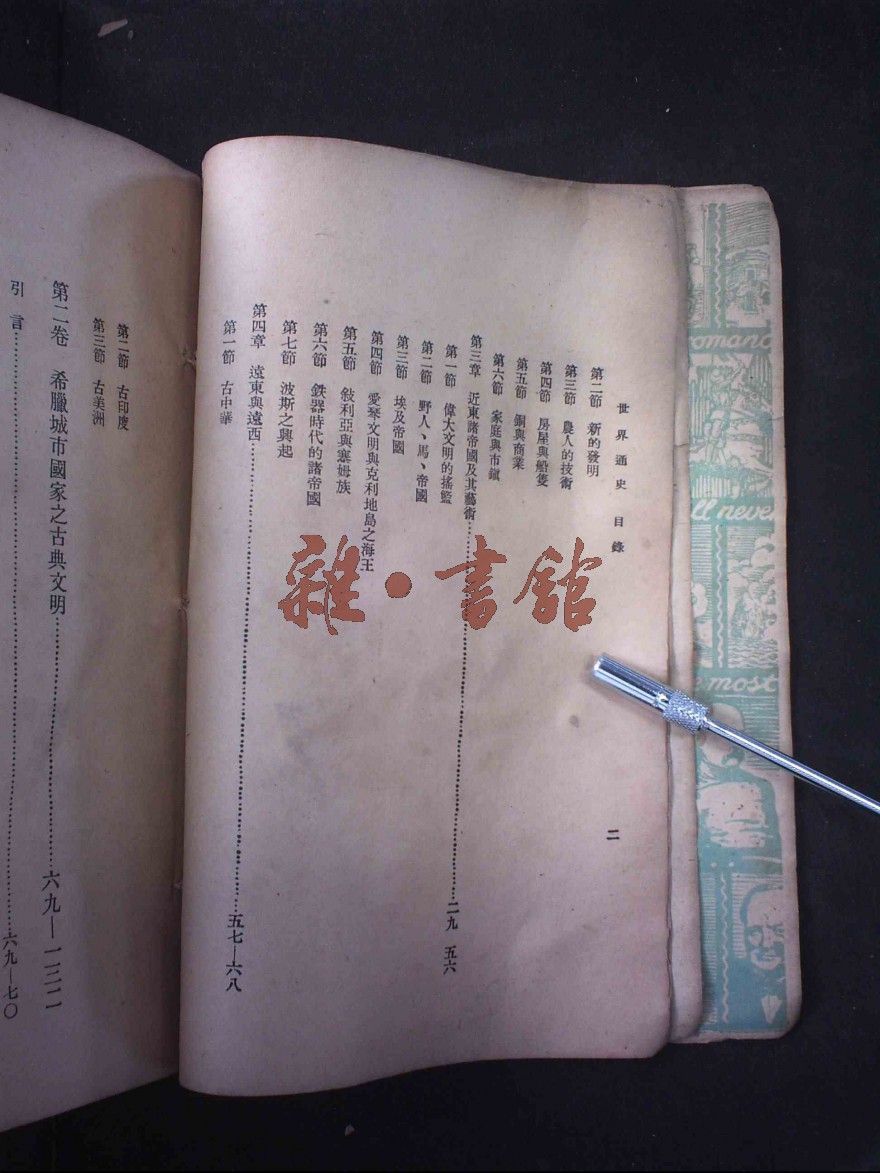 世界通史 目錄
第二節 新的發明
第三節 農人的技術
第四節 房屋與船隻
第五節 銅與商業
第六節 家庭與市鎭
第三章 近東諸帝國及其藝術……二九 五六
第一節 偉大文明的搖籃
第二節 野人、馬、帝國
第三節 埃及帝國
第四節 愛琴文明與克利地島之海王
第五節 敍利亞與塞姆族
第六節 鉄器時代的諸帝國
第七節 波斯之興起
第四章 遠東與遠西……五七—六八
第一節 古中華
二
第二節 古印度
第三節 古美洲
第二卷 希臘城市國家之古典文明……六九—一三二
引言……六九—七〇
雜·書館
romanc
ll neve
most